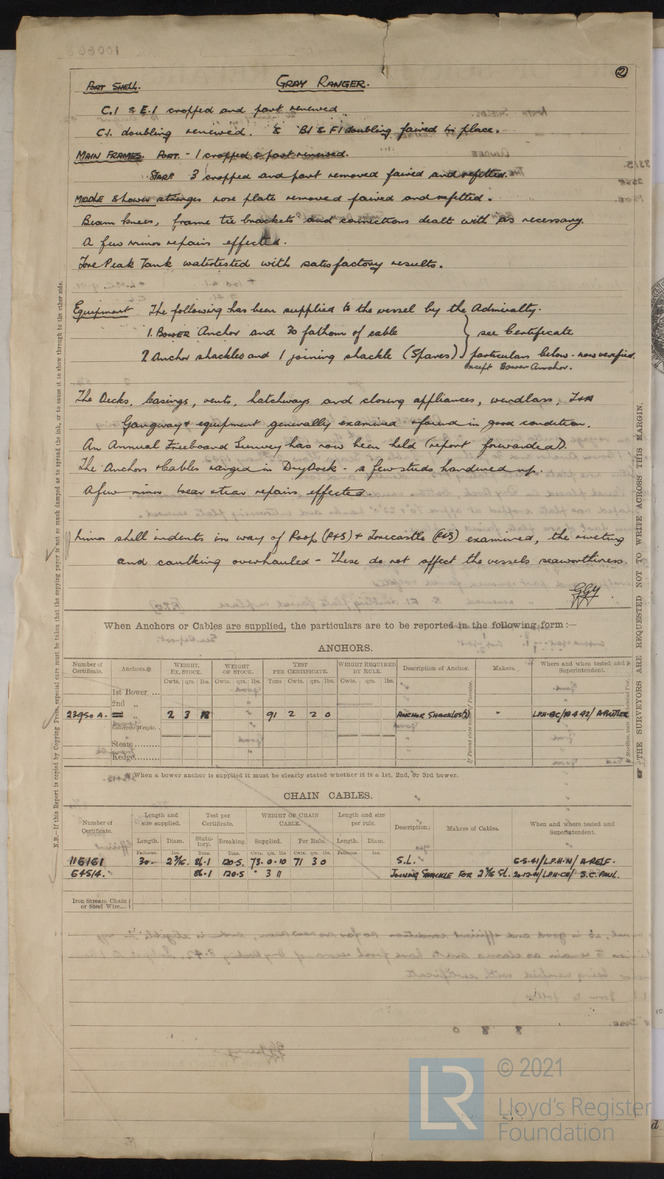 ②
PORT SHELL. GRAY RANGER.
C.1 & E.1 cropped and part renewed.
C.1. doubling renewed. & B1 & F1 doubling faired in place.
MAIN FRAMES. PORT. - 1 cropped & part renewed.
STARB 3 cropped and part removed faired and refitted.
MIDDLE & Lower stringers nose plate removed faired and refitted.
Beam knees, frame tie brackets and connections dealt with as necessary.
A few minor repairs effected.
Fore Peak Tank watertested with satisfactory results.
Equipment The following has been supplied to the vessel by the Admiralty.
1. BOWER Anchor and 30 fathom of cable } see Certificate
2 Anchor shackles and 1 joining shackle (Spares) } particulars below - now verified
except Bower Anchor.
The Decks, casings, vents, hatchways and closing appliances, windlass,
Gangway & equipment generally examined & found in good condition.
An Annual Freeboard Survey has now been held (report forwarded).
The Anchors & Cables ranged in DryDock - a few studs hardened up.
A few minor wear & tear repairs effected.
Minor shell indents in way of Poop (P&S) & Forecastle (P&S) examined, the riveting
and caulking overhauled - These do not affect the vessels seaworthiness.
When Anchors or Cables are supplied, the particulars are to be reported in the following form :—
ANCHORS.
Number of Certificate. Anchors. WEIGHT, EX. STOCK. WEIGHT OF STOCK. TEST PER CERTIFICATE. WEIGHT REQUIRED BY RULE. Description of Anchor. Makers. Where and when tested and Superintendent.
Cwts. qrs. lbs. Cwts. qrs. lbs. Tons Cwts. qrs. lbs. Cwts. qrs. lbs.
1st Bower ...
2nd „
23950 A. 2 3 18 91 2 2 0 ANCHOR SHACKLES(2) -
Stream
Kedge
When a bower anchor is supplied it must be clearly stated whether it is a 1st, 2nd, or 3rd bower.
CHAIN CABLES.
Number of Certificate. Length and size supplied. Test per Certificate. WEIGHT OF CHAIN CABLE. Length and size per rule. Description. Makers of Cables. When and where tested and Superintendent.
Length. Diam. Statutory. Breaking. Supplied. Per Rule. Length. Diam.
116161 30 2 3/16 86.1 120.5 73.0.10 71 3 0 S.L. 6-5-41/L.P.H-N/ A-RELF.
64514. 86.1 120.5 " 3 11 JOINING SHACKLE FOR 2 3/16 SL.
Iron Stream Chain or Steel Wire
THE SURVEYORS ARE REQUESTED NOT TO WRITE ACROSS THIS MARGIN.
© 2021
LR
Lloyd's Register
Foundation